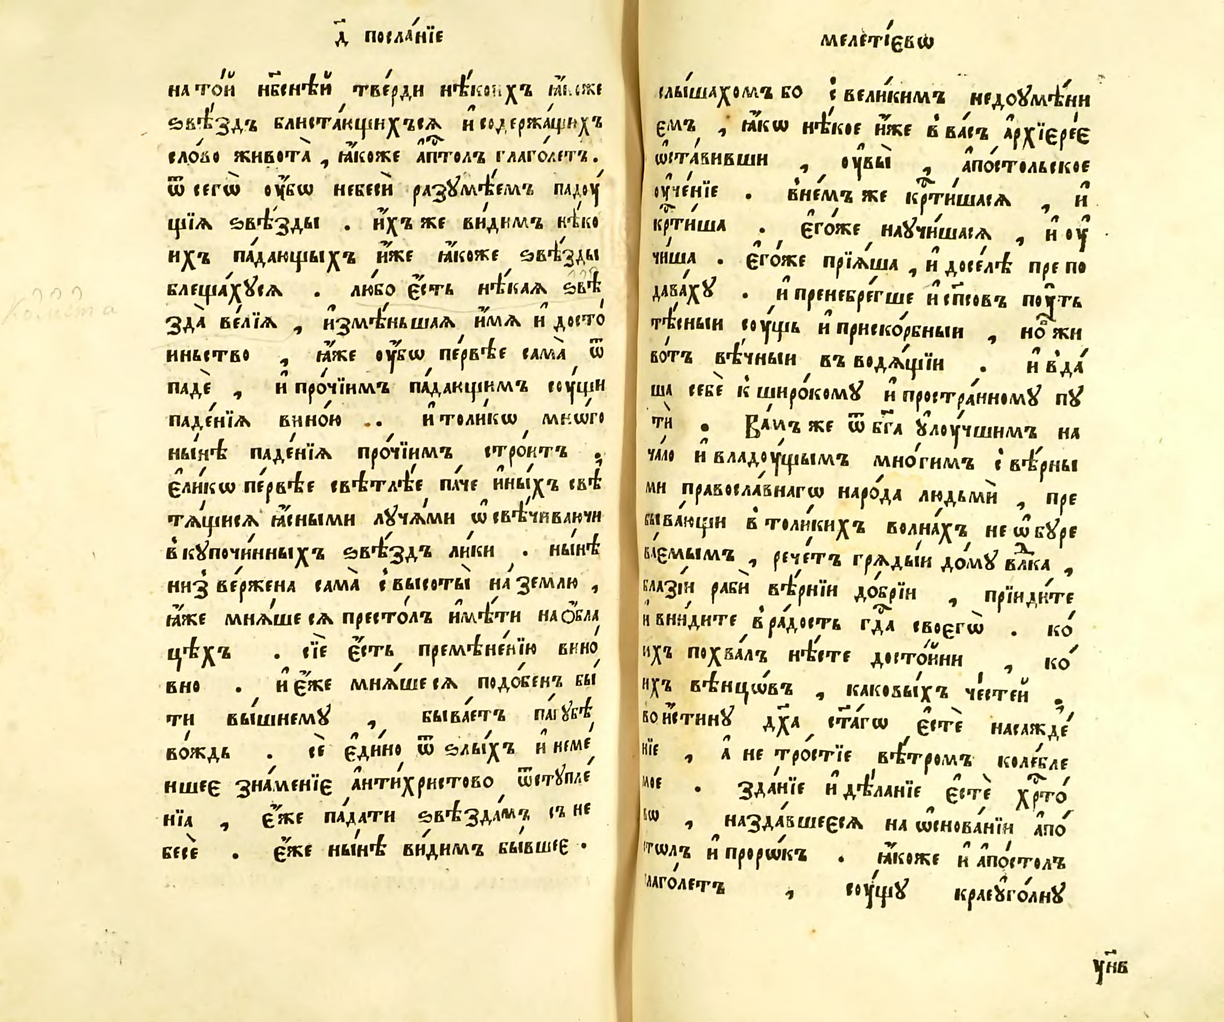 д҃ посла́нїе
на то́й нб҃снѣй тве́рди нѣ́коихъ ꙗ҆́коже
ѕвѣ́здъ блиста́ющихъсѧ и҆ содержа́щихъ
сло́во живота̀ , ꙗ҆́коже а҆п҃толъ глаго́летъ .
ѿ сегѡ̀ ᲂу҆́бѡ небесѝ разꙋмѣ́емъ падоу́
щїѧ ѕвѣ́зды . и҆́хъ же ви́димъ нѣ́ко
ихъ па́дающыхъ и҆́же ꙗ҆́коже ѕвѣ́зды
блеща́хꙋсѧ . любо є҆́сть нѣ́каѧ ѕвѣ
зда̀ ве́лїѧ , и҆змѣ́ньшаѧ и҆́мѧ и҆ досто́
иньство , ꙗ҆́же ᲂу҆́бѡ пе́рвѣе сама̀ ѿ
падѐ , и҆ про́чїимъ па́дающимъ соу́щи
паде́нїѧ вино́ю .. и҆ толи́кѡ мнѡ́го
ны́нѣ паде́нїѧ про́чїимъ стро́итъ .
є҆ли́кѡ пе́рвѣе свѣтлѣ́е па́че и҆ны́хъ свѣ
тѧ́щисѧ ꙗ҆́сными лꙋча́ми ѡ҆свѣ́чиваючи
в҆кꙋпочи́нныхъ ѕвѣ́здъ ли́ки . ны́нѣ
низ̾ ве́ржена сама̀ с҆ высоты̀ на́ землю ,
ꙗ҆́же мнѧ́шесѧ престо́лъ и҆мѣ́ти на ѻ҆́бла
цѣхъ . сїѐ є҆́сть премѣне́нїю вино́
вно . и҆ є҆́же мнѧ́шесѧ подо́бенъ бы́
ти вы́шнемꙋ , быва́етъ па́гꙋбѣ
во́ждь . сѐ є҆ди́но ѿ ѕлы́хъ и҆ неме́
ншеє зна́менїє а҆нти́христово ѿстꙋпле́
нїа , є҆́же па́дати ѕвѣзда́мъ съ не
бесѐ . є҆́же ны́нѣ ви́димъ бы́вшеє .
мелѐтїєвѡ
слы́шахомъ бо с҆ вели́кимъ недоꙋмѣ́ни
емъ , ꙗ҆́кѡ нѣ́кое и҆́же в҆ ва́съ а҆рхїєре́є
ѡ҆ста́вивши , ᲂу҆вы̀ , а҆по́стольское
ᲂу҆че́нїе . в҆не́мъ же кр҃ти́шасѧ , и҆
кр҃ти́ша . є҆го́же наꙋчи́шасѧ , и҆ ᲂу҆
чи́ша . є҆го́же прїѧ́ша , и҆ досе́лѣ пре по
дава́хꙋ . и҆ пренебре́гше и҆ сп҃совъ поу́ть
тѣ́сныи соу́щь и҆ приско́рбныи , но̀ жи
во́тъ вѣ́чныи въ водѧ́щїи . и҆ в҆да́
ша себѐ к҆ широ́комꙋ и҆ простра́нномꙋ пꙋ
тѝ . Ва́мъ же ѿ бг҃а ᲂу҆лоу́чшимъ на
ча́ло и҆ владоу́щымъ мно́гимъ с҆ вѣ́рны
ми правосла́внагѡ наро́да людьмѝ , пре
быва́ющи в҆ толи́кихъ волна́хъ не ѡ҆бꙋре
ва́емымъ , рече́тъ грѧды́и до́мꙋ вл҃ка ,
блазі́и рабѝ вѣ́рнїи до́брїи , прїиди́те
и҆ вни́дите в҆ ра́дость гд҃а своєгѡ̀ . ко́
ихъ похва́лъ нѣ́сте досто́йни , ко́
ихъ вѣнцѡ́въ , каковы́хъ че́стей .
вои́стинꙋ дх҃а ст҃а́гѡ є҆стѐ насажде́
нїе , а҆ не тро́стїе вѣ́тромъ колѐбле
мое . зда́нїе и҆ дѣ́ланїе є҆стѐ хр҃то́
вѡ , назда́вшееєсѧ на ѡ҆снова́нїи а҆по́
столъ и҆ прорѡ́къ . ꙗ҆́коже и҆ а҆по́столъ
глаго́летъ , соу́щꙋ краеꙋго́лнꙋ
ᲂу҃нв